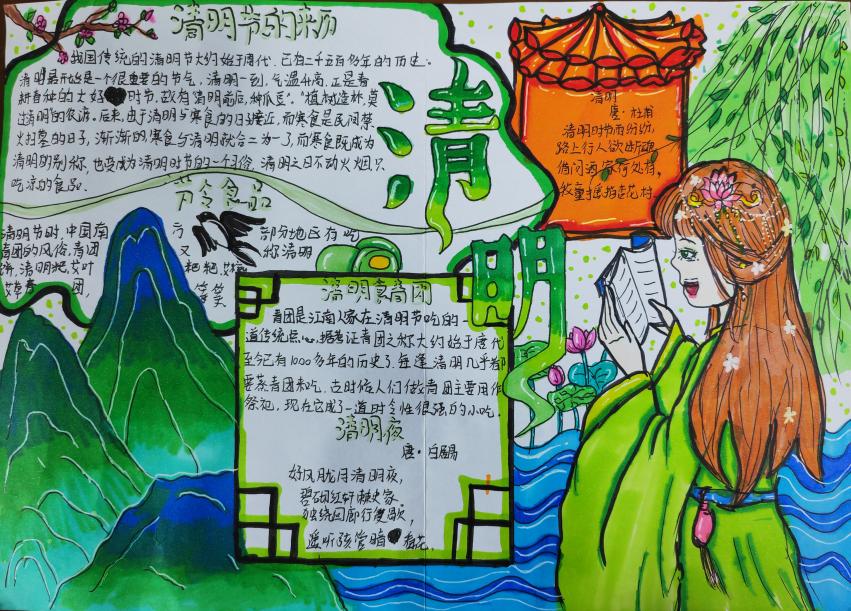 清明节的来历
我国传统的清明节大约始于周代,已有二千五百多年的历史。
清明最开始是一个很重要的节气,清明一到,气温升高,正是春
耕春种的大好时节,故有"清明前后,种瓜豆"。"植树造林,莫
过清明"的农谚。后来,由于清明与寒食的日子接近,而寒食是民间禁
火扫墓的日子,渐渐的,寒食与清明就合二为一了,而寒食既成为
清明的别称,也变成为清明时节的一个习俗,清明之日不动火烟只
吃凉的食品。
清明
清明
唐·杜甫
清明时节雨纷纷,
路上行人欲断魂
借问酒家何处有,
牧童遥指杏花村.
节令食品
清明节时,中国南方部分地区有吃
青团的风俗,青团又称清明
饼,清明粑,艾叶粑粑,艾
团,等等
清明食青团
青团是江南人家在清明节吃的一
道传统点心,据考证青团之称大约始于唐代
至今已有1000多年的历史了,每逢清明几乎都
要蒸青团来吃,古时候人们做青团主要用作
祭祀,现在它成了一道时令性很强的小吃.
清明夜
唐·白居易
好风胧月清明夜,
碧砌红轩刺史家
独绕回廊行复歇,
遥听弦管暗看花.